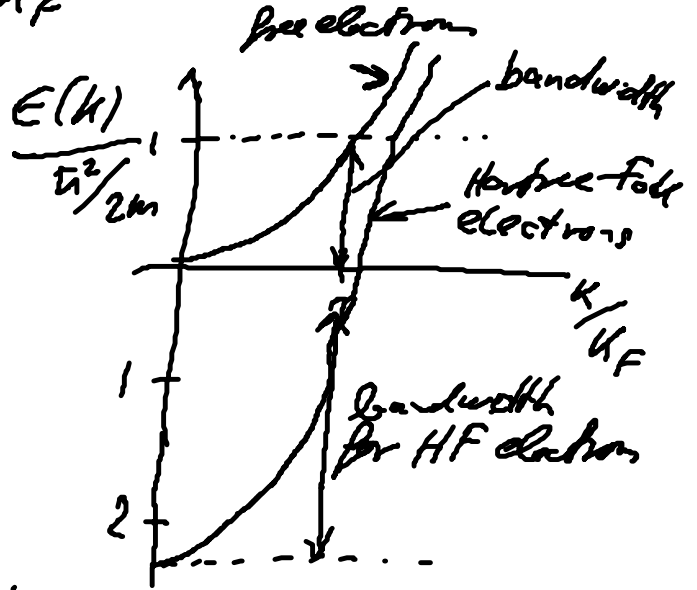 K_F
free electron
E(k)
ħ²/2m
1
bandwidth
Hartree Fock
electrons
K/K_F
1
bandwidth
for HF electrons
2